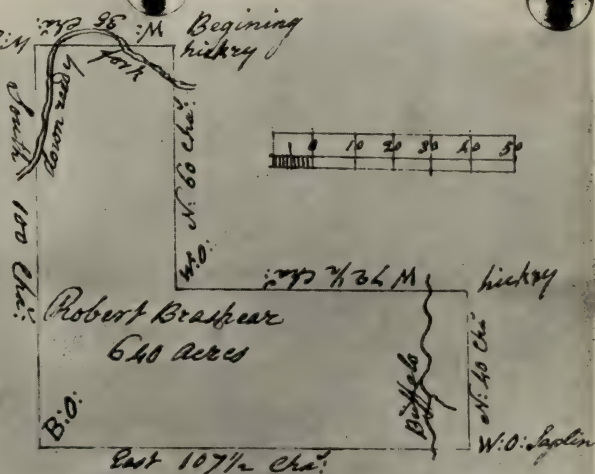 W: 35 Cha: W:
Begining
hickry
fork
down reedy
South 100 Cha:
N: 60 Cha:
0 10 20 30 40 50
W:O:
W 72 1/2 Cha:
hickry
Robert Brashear
640 acres
Buffalo
N: 40 Cha
B:O:
W:O: Saplin
East 107 1/2 Cha: